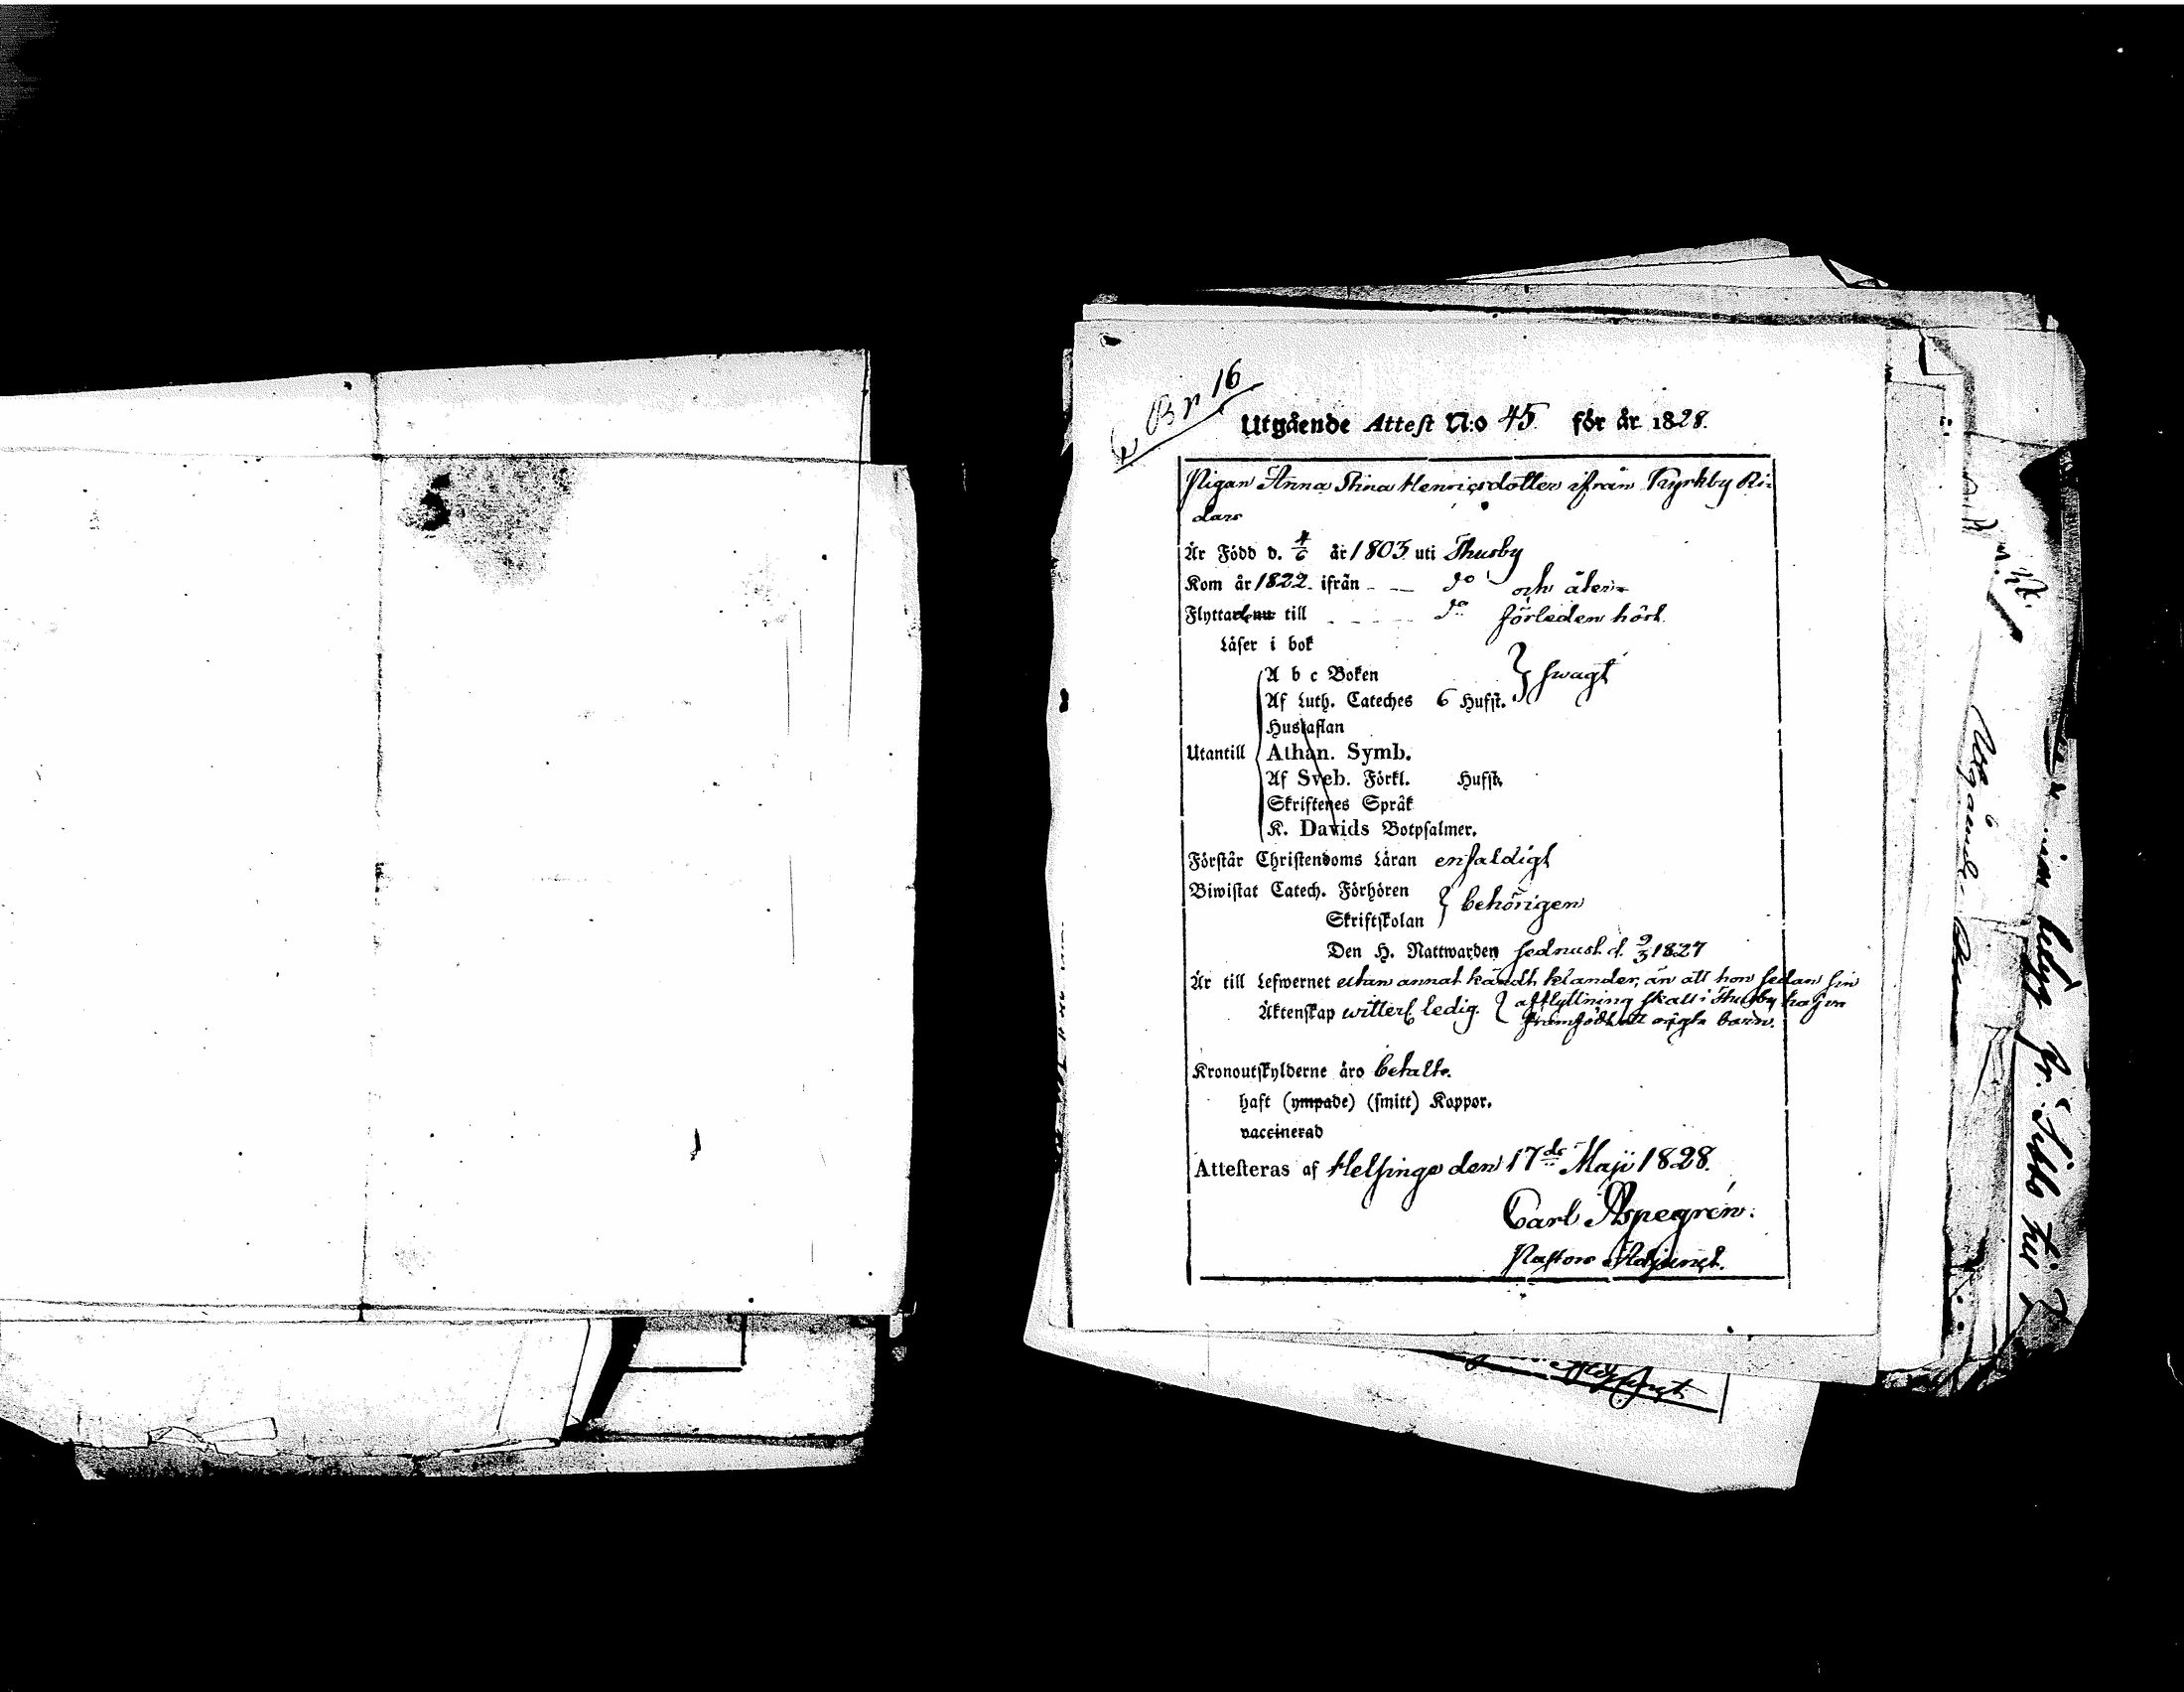 Br 16
Utgående Attest N:o 45 för år 1828.
Pigan Anna Stina Henricsdotter ifrån Kyrkby Ri-
dars
Är Född d. 4/6 år 1803 uti Thusby
Kom år 1822 ifrån - - do och åter-
Flyttade nu till - - - - do förleden höst.
Läser i bok
A b c Boken } swagt
Af Luth. Cateches 6 Hufst.
Hustaflan
Utantill Athan. Symb.
Af Sveb. Förkl. Hufst.
Skriftenes Språk
K. Davids Botpsalmer.
Förstår Christendoms Läran enfaldigt
Biwistat Catech. Förhören } behörigen
Skriftskolan
Den H. Nattwarden sednast d. 9/3 1827
Är till Lefwernet utan annat kändt klander, än att hon sedan sin
Äktenskap witterl. ledig. { afflyttning skall i Thusby hafva
framfödt ett oägta barn.
Kronoutskylderne äro betalte.
haft (ympade) (smitt) Koppor.
vaccinerad
Attesteras af Helsinge den 17de Maji 1828.
Carl Aspegrén.
Pastors Adjunct.